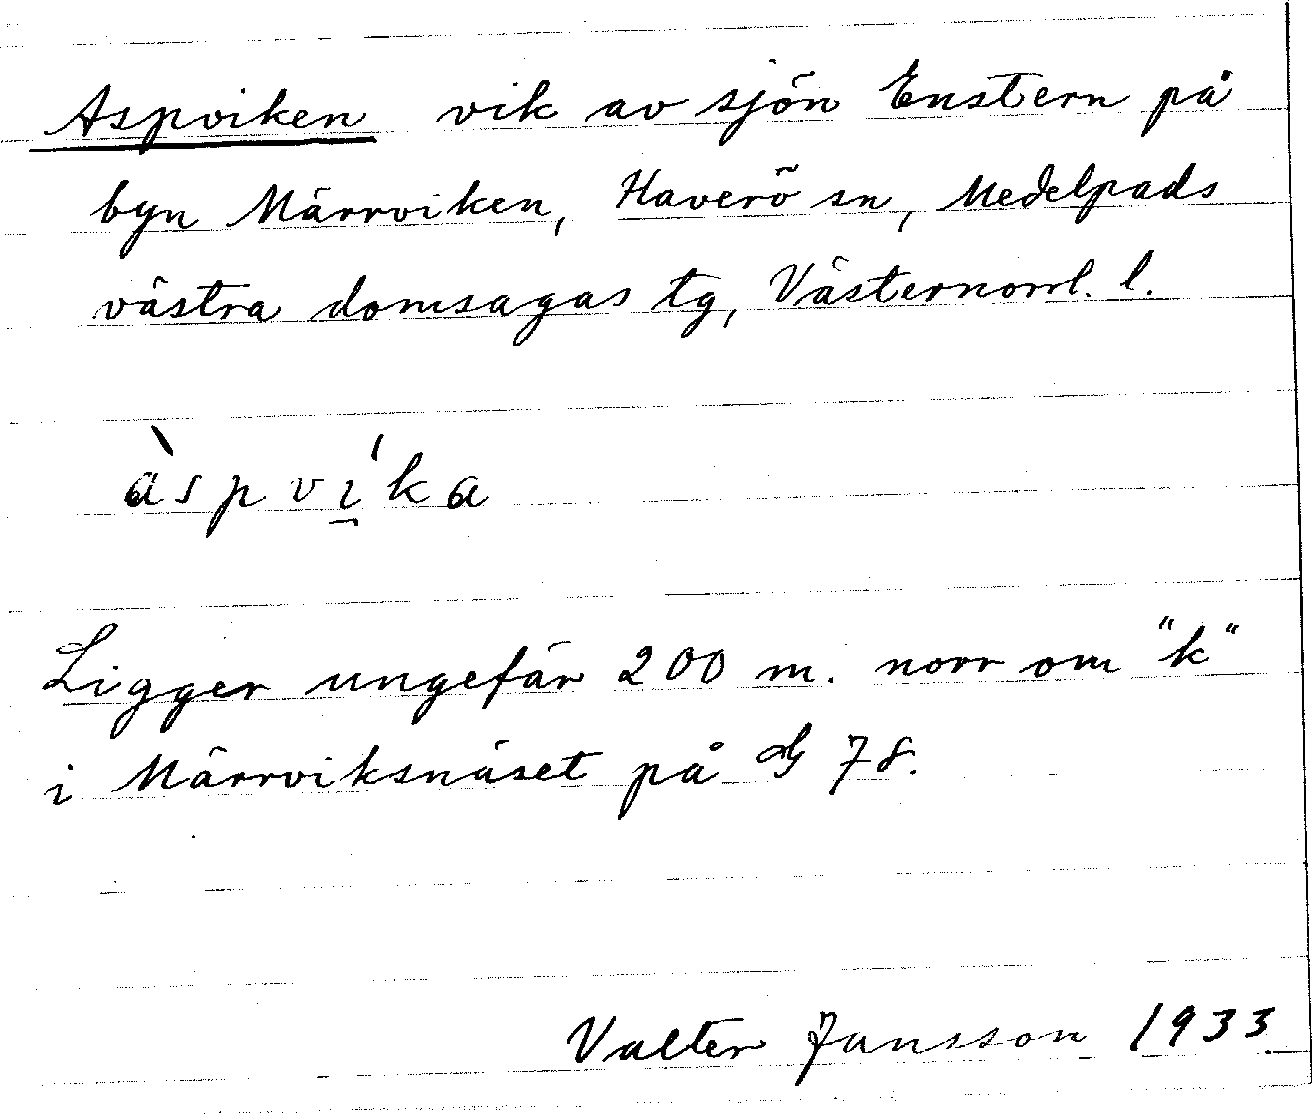 Aspviken vik av sjön Enstern på
byn Märrviken, Haverö sn, Medelpads
västra domsagas tg, Västernorrl. l.
àspví̠ka
Ligger ungefär 200 m. norr om "k"
i Märrviksnäset på G 78.
Valter Jansson 1933